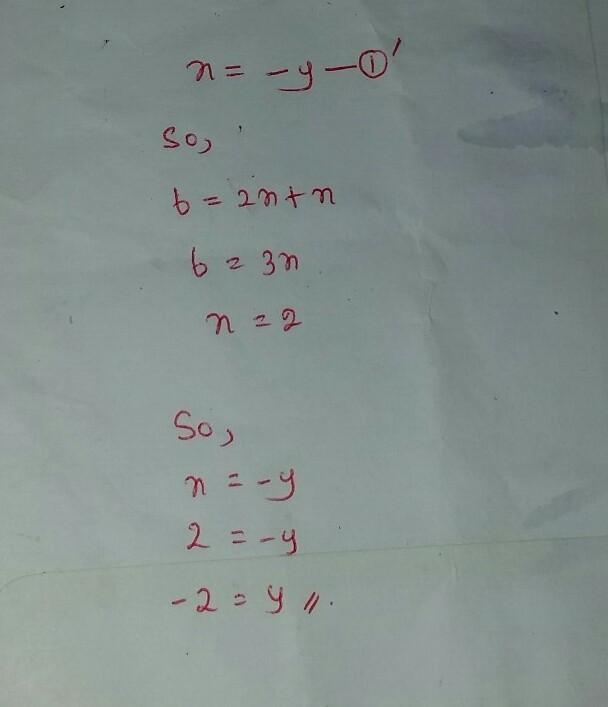 x = -y — ①'
So,
6 = 2x + x
6 = 3x
x = 2
So,
x = -y
2 = -y
-2 = y //.